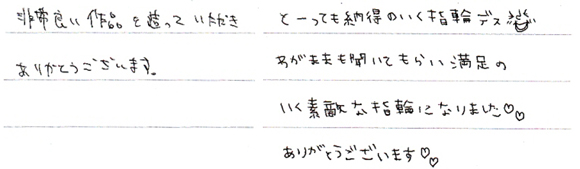 非常良い作品を造っていただき
ありがとうございます。
とーっても納得のいく指輪デス
わがままも聞いてもらい満足の
いく素敵な指輪になりました♡♡
ありがとうございます♡♡